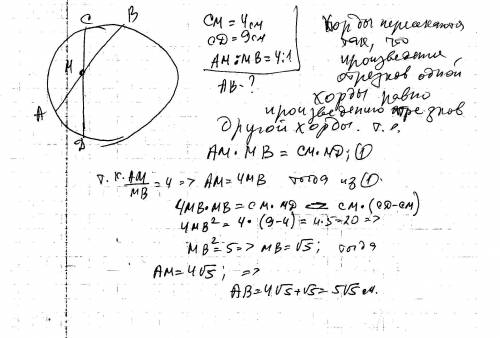 C
B
M
A
D
CM = 4 см
CD = 9 см
AM : MB = 4:1
AB - ?
Хорды пересекаются
так, что
произведения
отрезков одной
хорды равно
произведению отрезков
другой хорды. т.е.
AM · MB = CM · MD; (1)
т.к. AM/MB = 4 => AM = 4MB тогда из (1)
4MB · MB = CM · MD = CM · (CD - CM)
4MB² = 4 · (9-4) = 4·5 = 20 =>
MB² = 5 => MB = √5; тогда
AM = 4√5; =>
AB = 4√5 + √5 = 5√5 см.